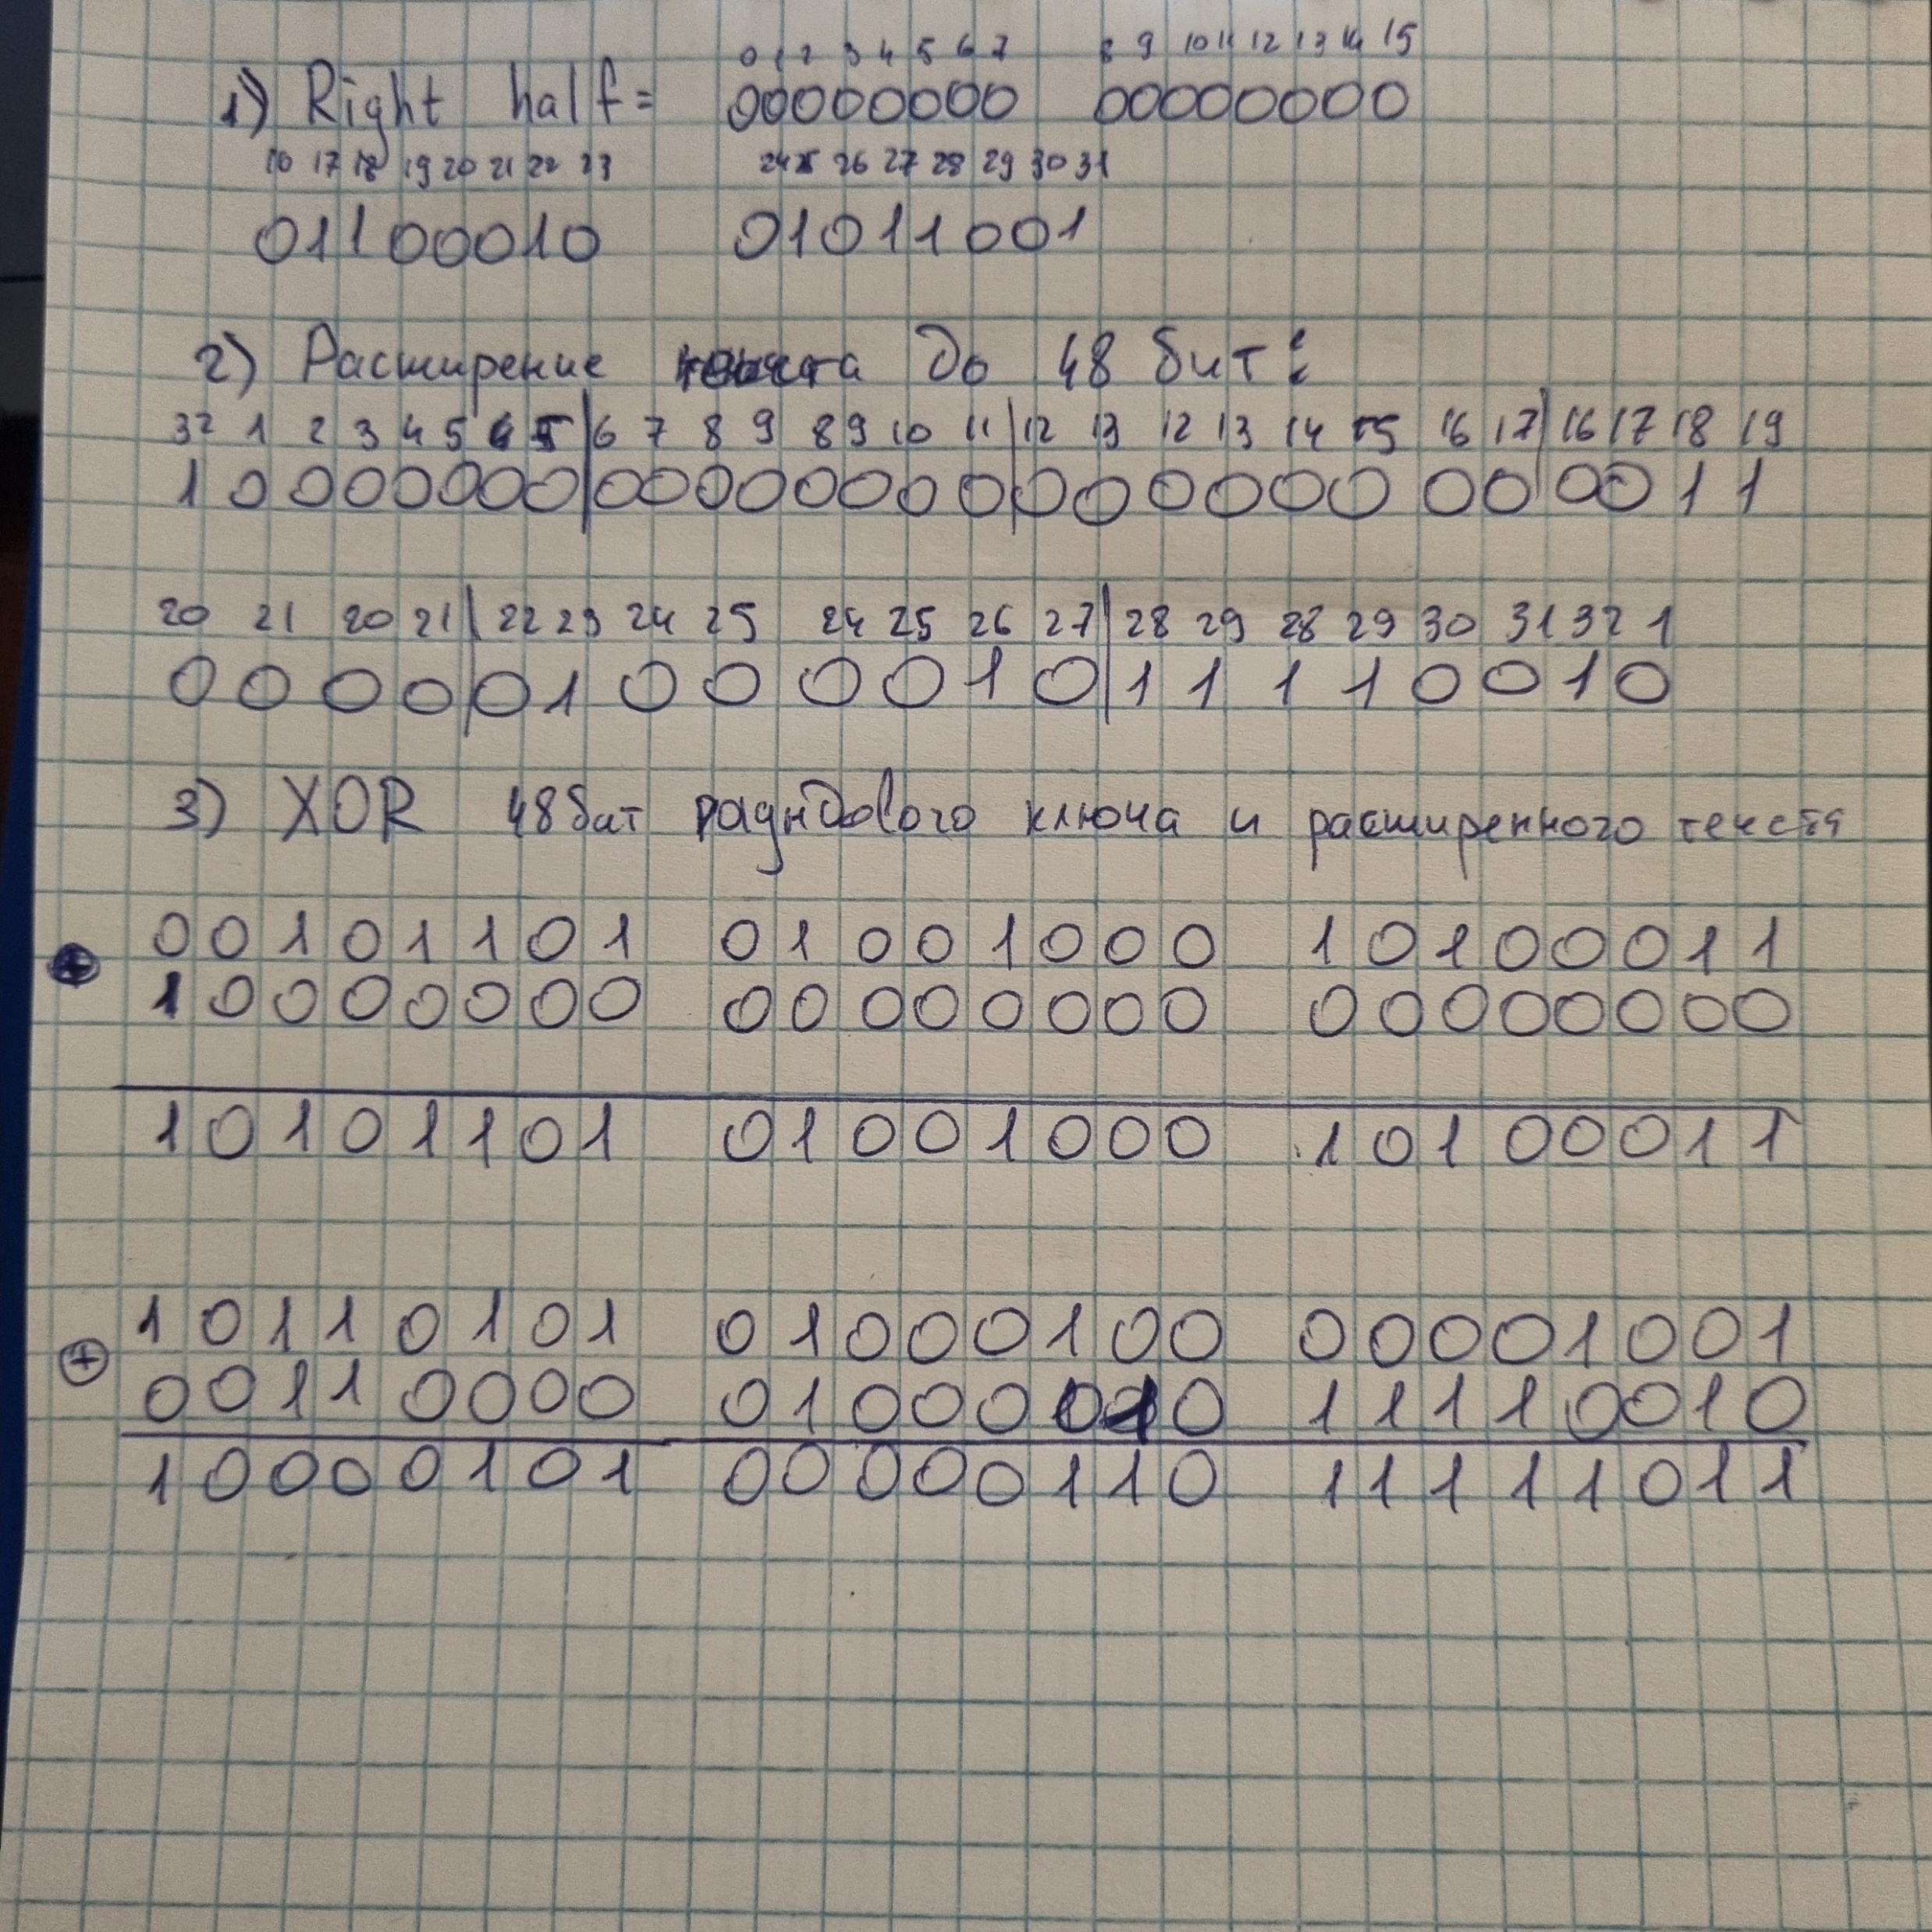 0 1 2 3 4 5 6 7 8 9 10 11 12 13 14 15
1) Right half = 00000000 00000000
16 17 18 19 20 21 22 23 24 25 26 27 28 29 30 31
01100010 01011001
2) Расширение текста до 48 бит:
32 1 2 3 4 5 4 5 | 6 7 8 9 8 9 10 11 | 12 13 12 13 14 15 16 17 | 16 17 18 19
1 0 0 0 0 0 0 0 | 0 0 0 0 0 0 0 0 | 0 0 0 0 0 0 0 0 | 0 0 1 1
20 21 20 21 | 22 23 24 25 24 25 26 27 | 28 29 28 29 30 31 32 1
0 0 0 0 | 0 1 0 0 0 0 1 0 | 1 1 1 1 0 0 1 0
3) XOR 48 бит раундового ключа и расширенного текста
0 0 1 0 1 1 0 1 0 1 0 0 1 0 0 0 1 0 1 0 0 0 1 1
⊕ 1 0 0 0 0 0 0 0 0 0 0 0 0 0 0 0 0 0 0 0 0 0 0 0
1 0 1 0 1 1 0 1 0 1 0 0 1 0 0 0 1 0 1 0 0 0 1 1
1 0 1 1 0 1 0 1 0 1 0 0 0 1 0 0 0 0 0 0 1 0 0 1
⊕ 0 0 1 1 0 0 0 0 0 1 0 0 0 0 1 0 1 1 1 1 0 0 1 0
1 0 0 0 0 1 0 1 0 0 0 0 0 1 1 0 1 1 1 1 1 0 1 1